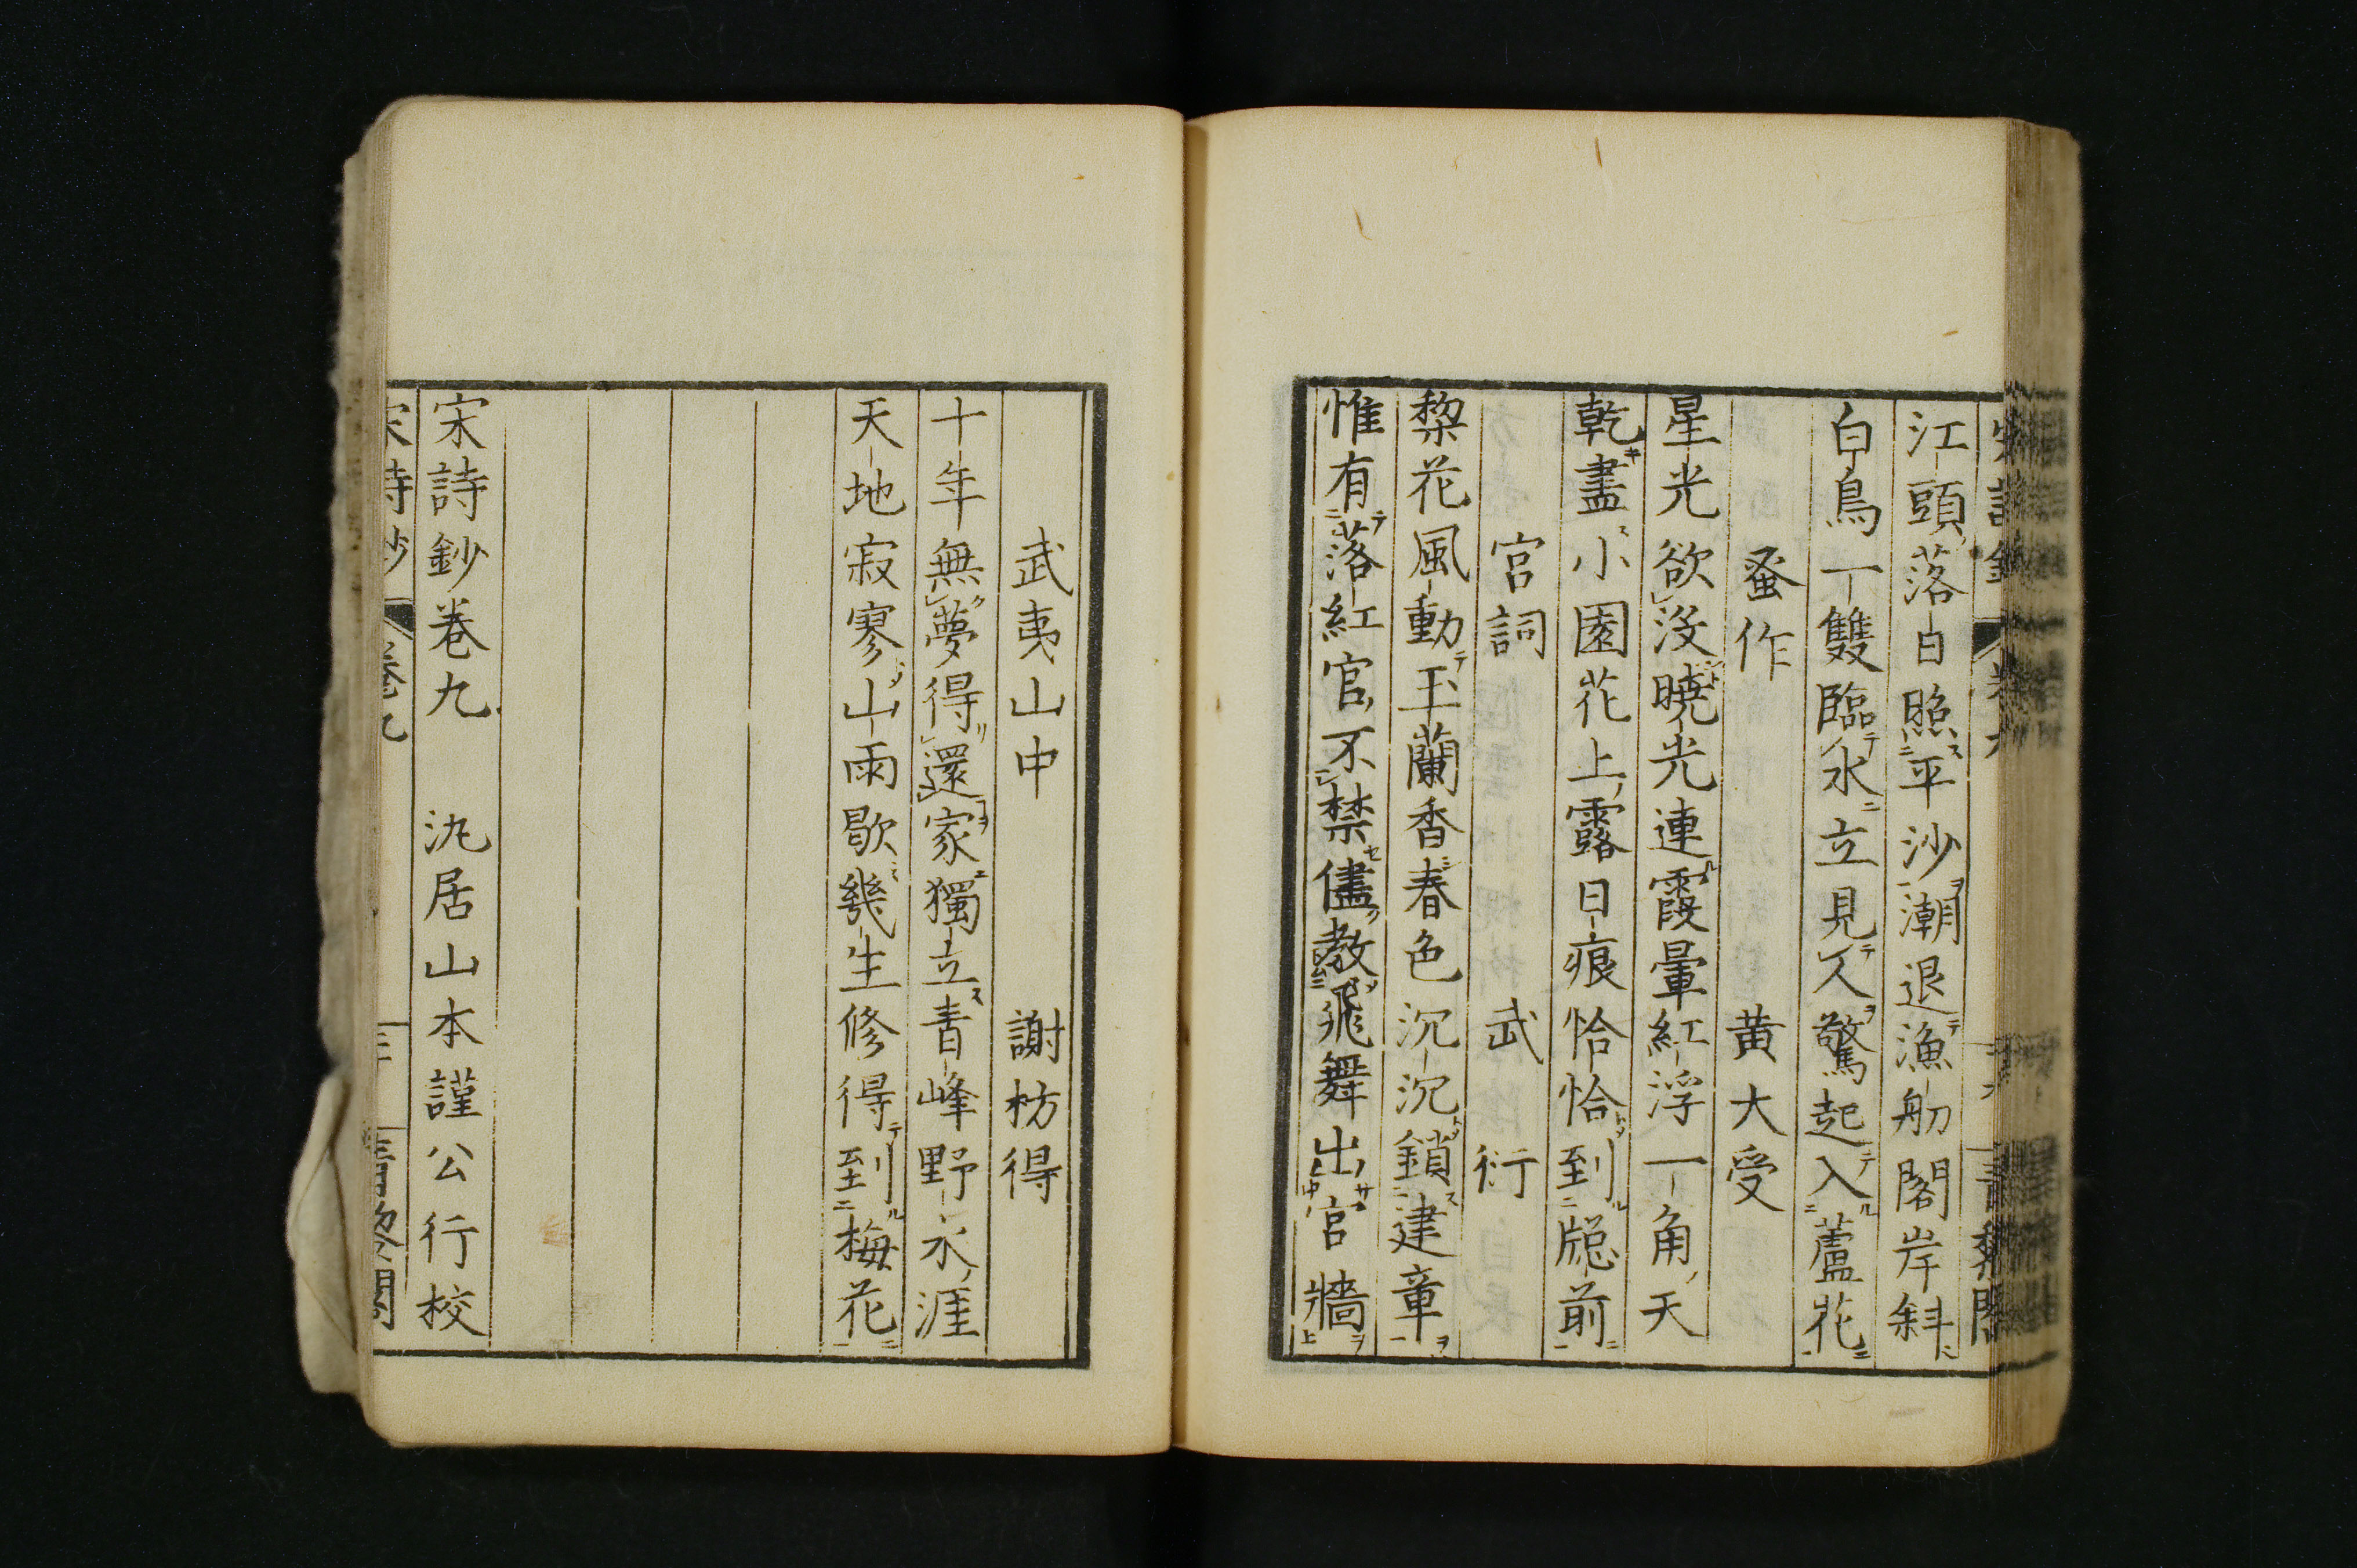 江頭落日照平沙潮退漁舠閣岸斜
白鳥一雙臨水立見人驚起入蘆花
蚤作 黄大受
星光欲没曉光連霞暈紅浮一角天
乾盡小園花上露日痕恰恰到牕前
宮詞 武衍
梨花風動玉蘭香春色沉沉鎖建章
惟有落紅官不禁儘教飛舞出宮牆
武夷山中 謝枋得
十年無夢得還家獨立青峰野水涯
天地寂寥山雨歇幾生修得到梅花
宋詩鈔卷九 氿居山本謹公行校
宋詩鈔 卷九